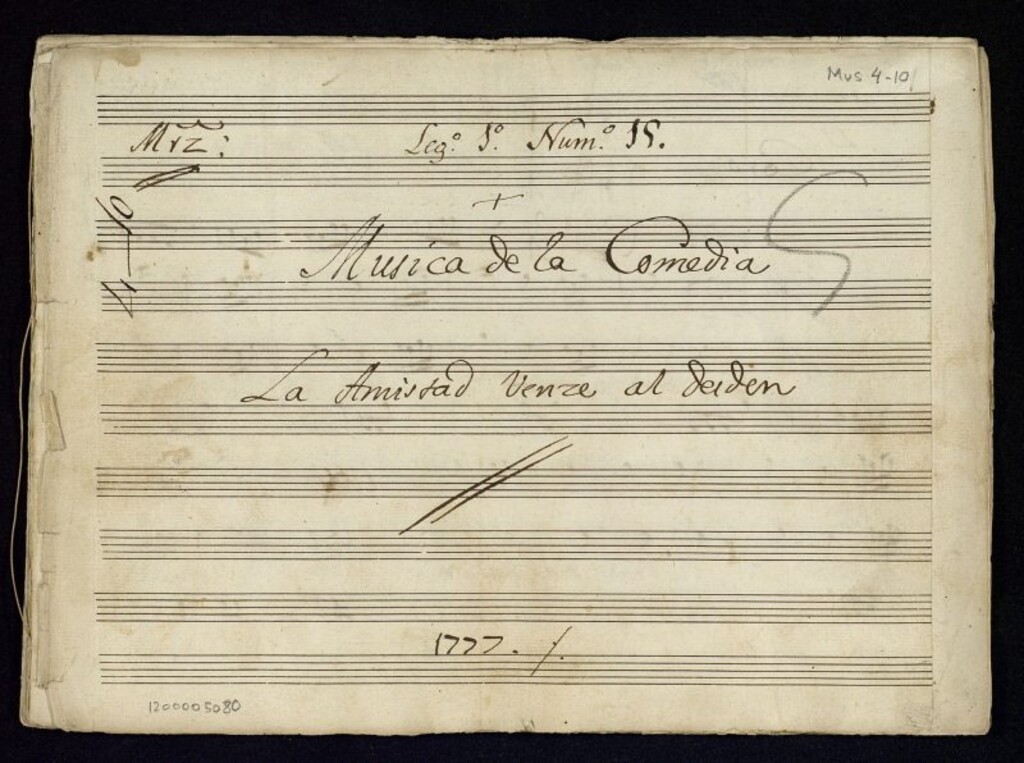 Mus 4-10
Mrz̃: Leg.º 1.º Num.º 15.
4-10
+
Musica de la Comedia
La Amistad Venze al desden
1777. /.
1200005080